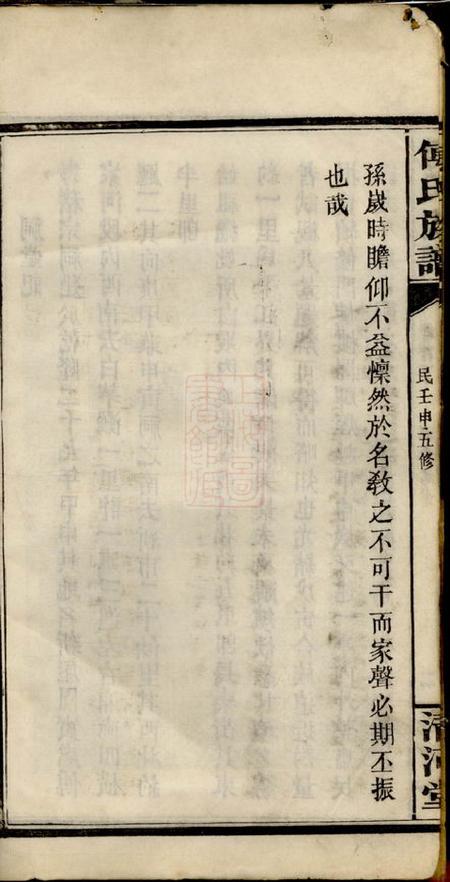 傅氏族譜
民壬申五修
清河堂
孫歲時瞻仰不益懍然於名教之不可干而家聲必期丕振
也哉
上海圖
書館藏